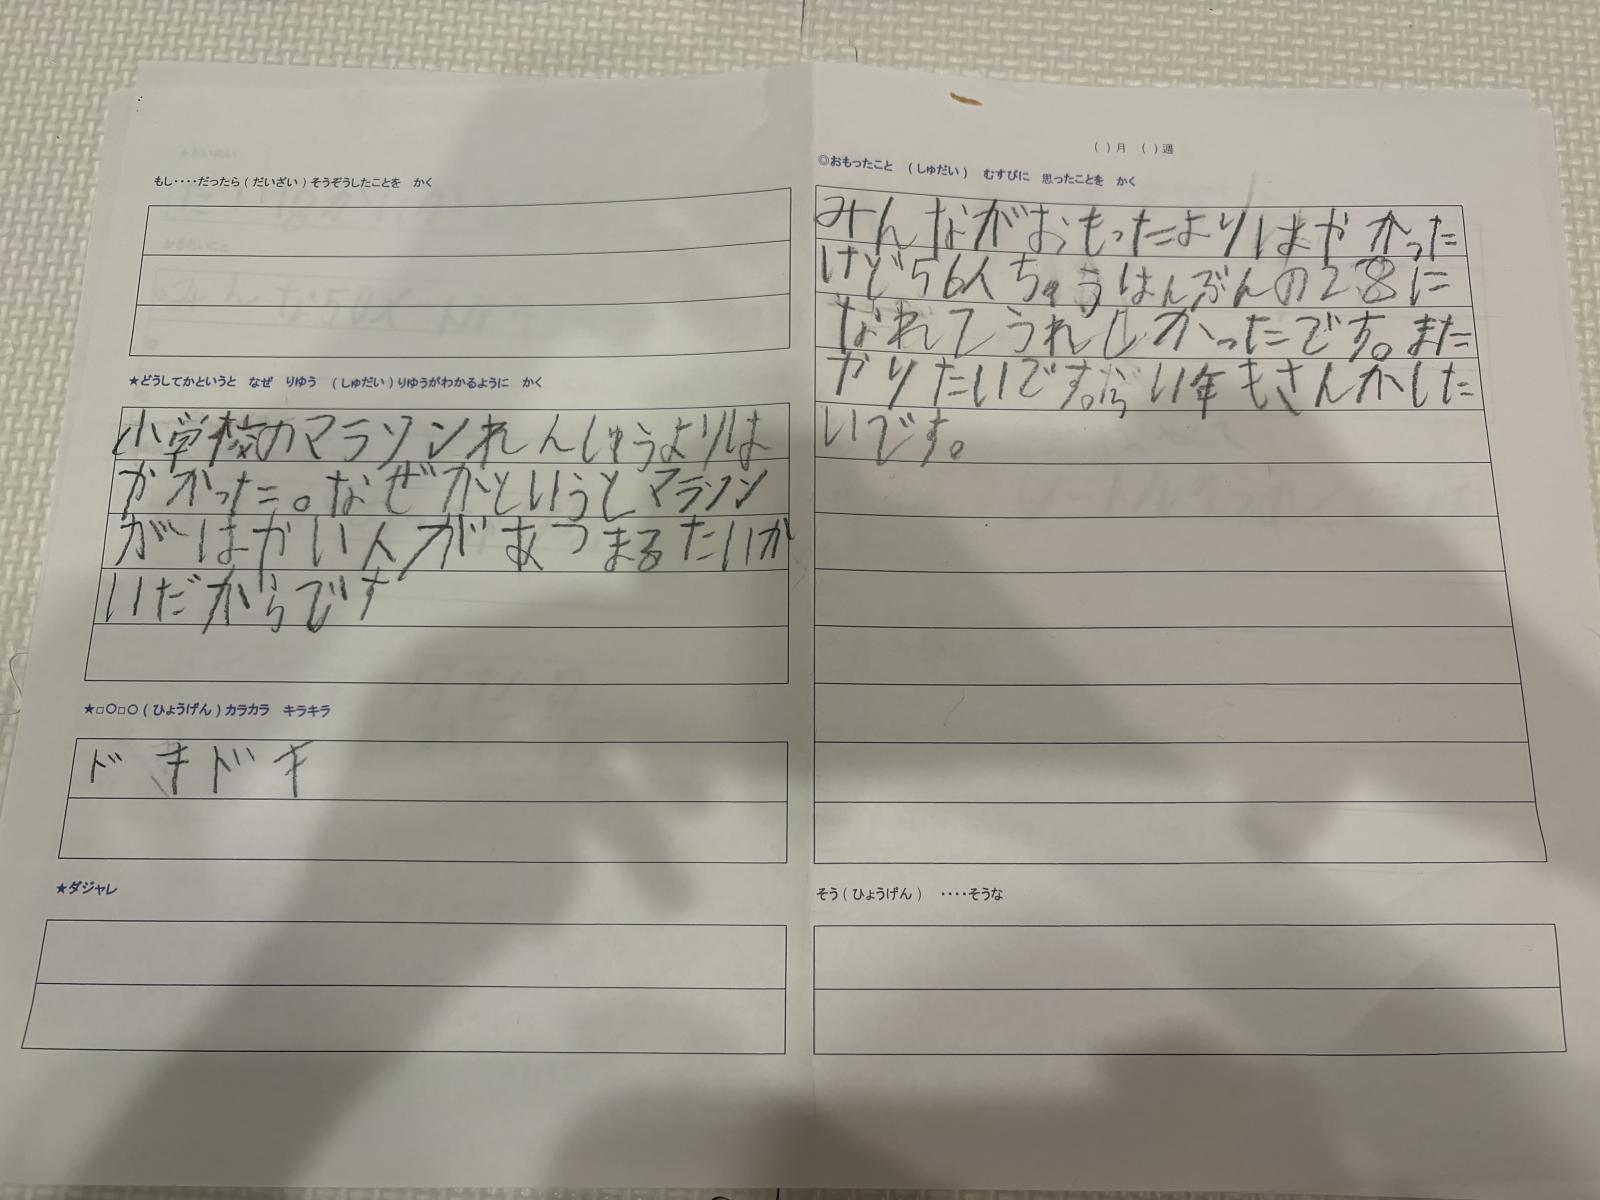 もし‥‥だったら(だいざい)そうぞうしたことを かく
★どうしてかというと なぜ りゆう (しゅだい)りゆうがわかるように かく
小学校のマラソンれんしゅうよりは
やかった。なぜかというとマラソン
がはやい人があつまるたいか
いだからです
★□○□○(ひょうげん)カラカラ キラキラ
ドキドキ
★ダジャレ
( )月 ( )週
◎おもったこと (しゅだい) むすびに 思ったことを かく
みんながおもったよりはやかった
けど56人ちゅうはんぶんの28に
なれてうれしかったです。また
やりたいです。らい年もさんかした
いです。
そう(ひょうげん) ‥‥そうな